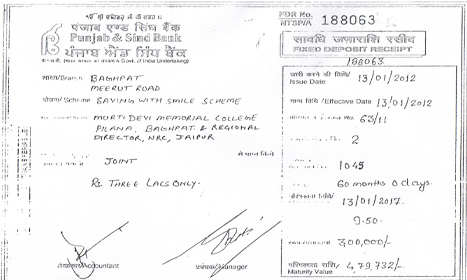 ਪੰਜਾਬ ਐਂਡ ਸਿੰਧ ਬੈਂਕ
Punjab & Sind Bank
पंजाब एण्ड सिंध बैंक
FDR No.
MTSP/A 188063
सावधि जमाराशि रसीद
FIXED DEPOSIT RECEIPT
188063
शाखा/Branch BAGHPAT
MEERUT ROAD
योजना/Scheme SAVING WITH SMILE SCHEME
MURTI DEVI MEMORIAL COLLEGE
PILANA, BAGHPAT & REGIONAL
DIRECTOR, NRC, JAIPUR
JOINT
Rs. THREE LACS ONLY.
जारी करने की तिथि/
Issue Date 13/01/2012
/ Effective Date 13/01/2012
63/11
2
1045
60 months 0 days.
13/01/2017.
9.50.
300,000/-
परिपक्वता राशि/
Maturity Value 4,79,732/-
लेखाकार/Accountant
प्रबंधक/Manager